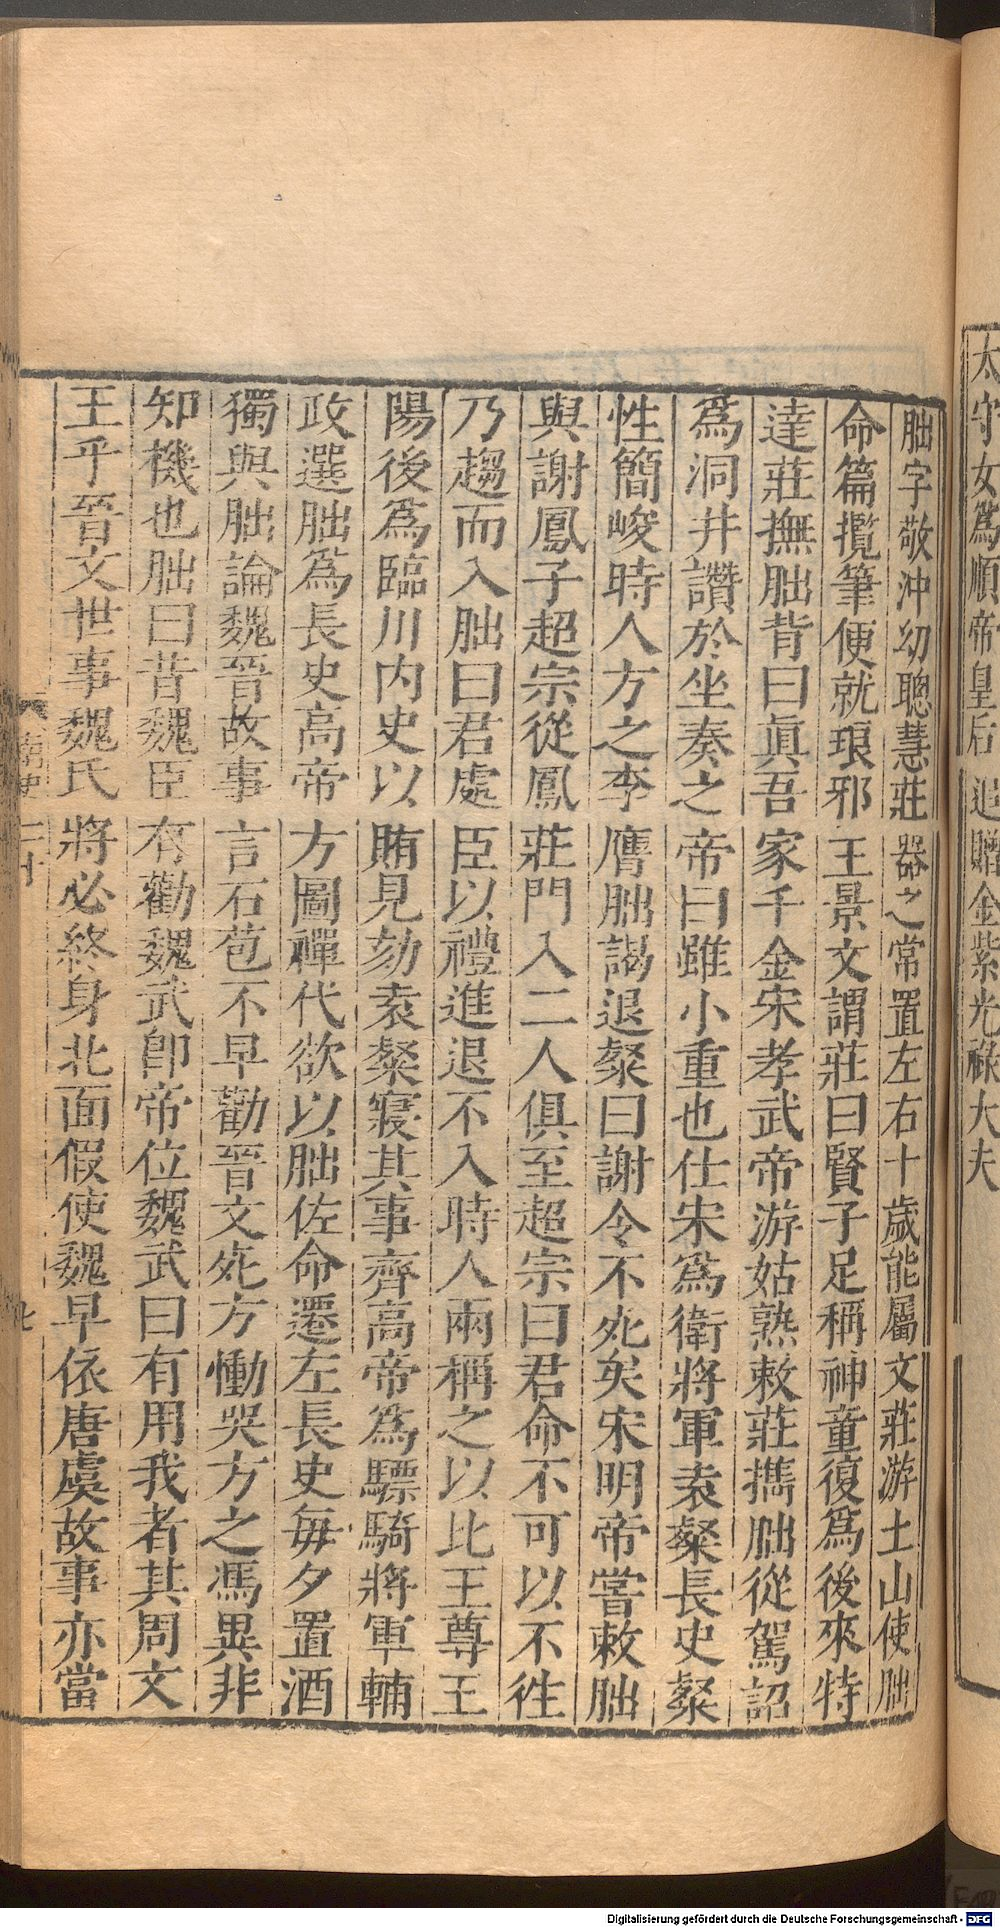 太守女爲順帝皇后追贈金紫光祿大夫
朏字敬沖幼聰慧莊器之常置左右十歲能屬文莊游土山使朏
命篇攬筆便就琅邪王景文謂莊曰賢子足稱神童復爲後來特
達莊撫朏背曰眞吾家千金宋孝武帝游姑熟敕莊攜朏從駕詔
爲洞井讚於坐奏之帝曰雖小重也仕宋爲衛將軍袁粲長史粲
性簡峻時人方之李膺朏謁退粲曰謝令不死矣宋明帝嘗敕朏
與謝鳳子超宗從鳳莊門入二人俱至超宗曰君命不可以不往
乃趨而入朏曰君處臣以禮進退不入時人兩稱之以比王尊王
陽後爲臨川内史以賄見劾袁粲寢其事齊高帝爲驃騎將軍輔
政選朏爲長史高帝方圖禪代欲以朏佐命遷左長史每夕置酒
獨與朏論魏晉故事言石苞不早勸晉文死方慟哭方之馮異非
知機也朏曰昔魏臣有勸魏武卽帝位魏武曰有用我者其周文
王乎晉文世事魏氏將必終身北面假使魏早依唐虞故事亦當
南史二十
七
Digitalisierung gefördert durch die Deutsche Forschungsgemeinschaft - DFG